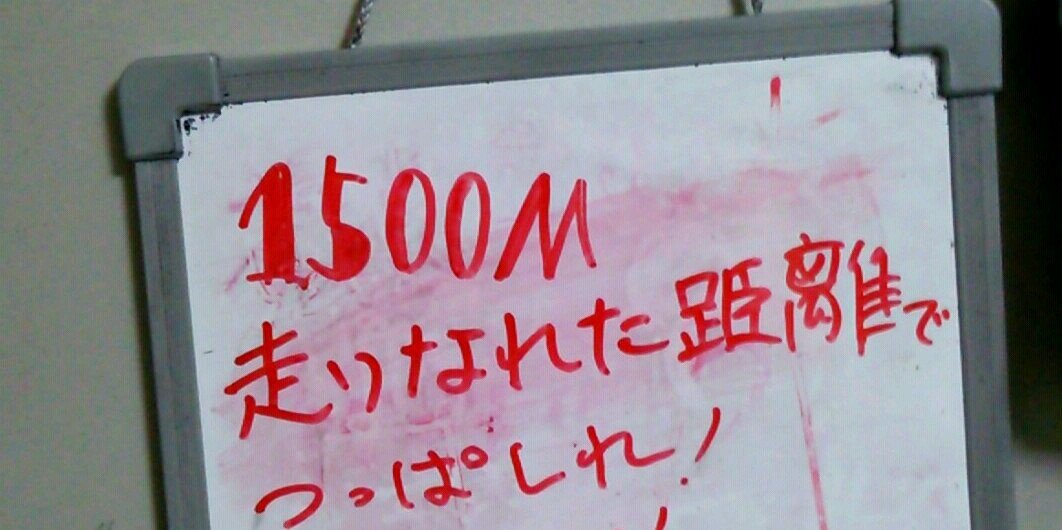 1500M
走りなれた距離で
つっぱしれ!